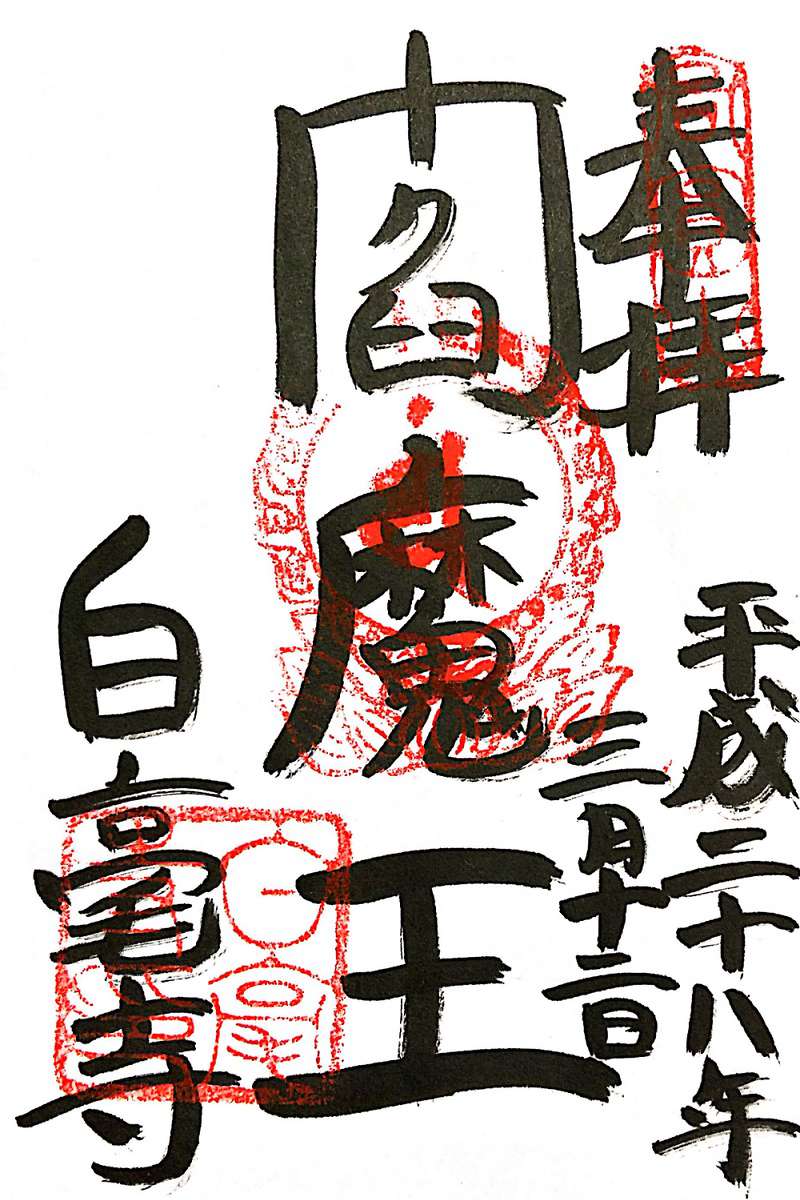 奉拝
平成二十八年
三月十二日
閻魔王
白毫寺